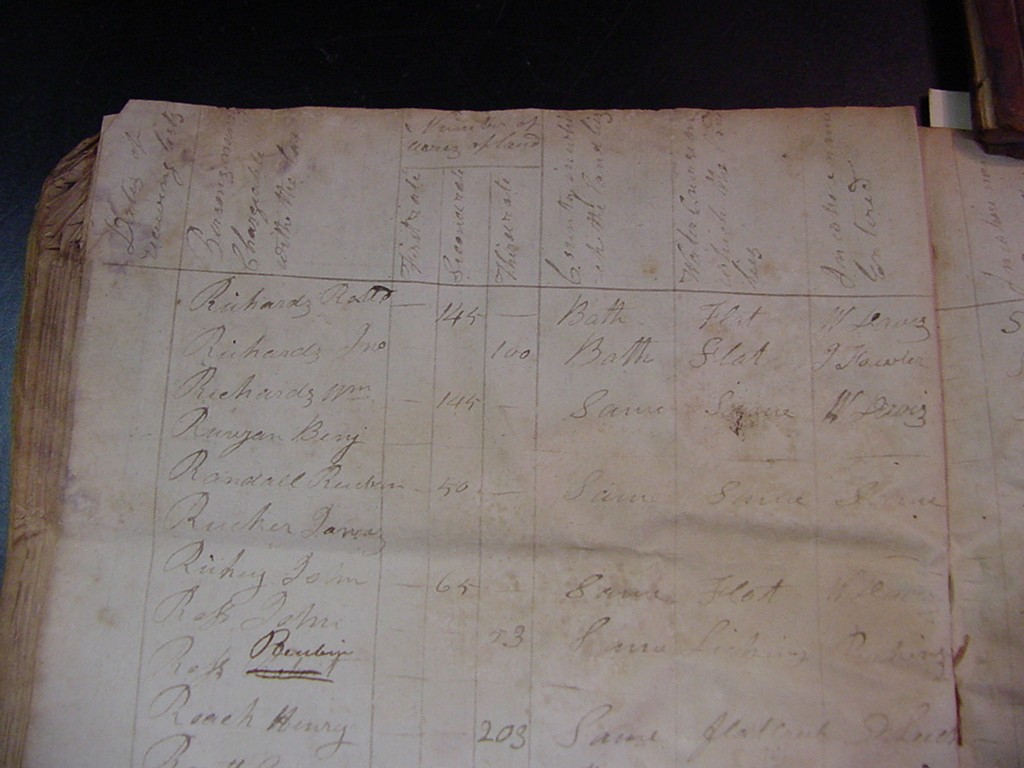 Dates of receiving lists
Persons names Chargeable with the tax
Number of acres of land
First rate
Second rate
Third rate
County in which the land lies
Water Course on which the land lies
In whose name Entered
Richards Robt — 145 — Bath Flat W Lewis
Richards Jno 100 Bath Slat J Fowler
Richards Wm — 145 — Same Same W Lewis
Runyan Benj
Randall Reuben — 50 — Same Same Same
Rucker James
Richey John — 65 Same Flat W
Ross John 53 Same Licking
Ross Reubin
Roach Henry 203 Same flat